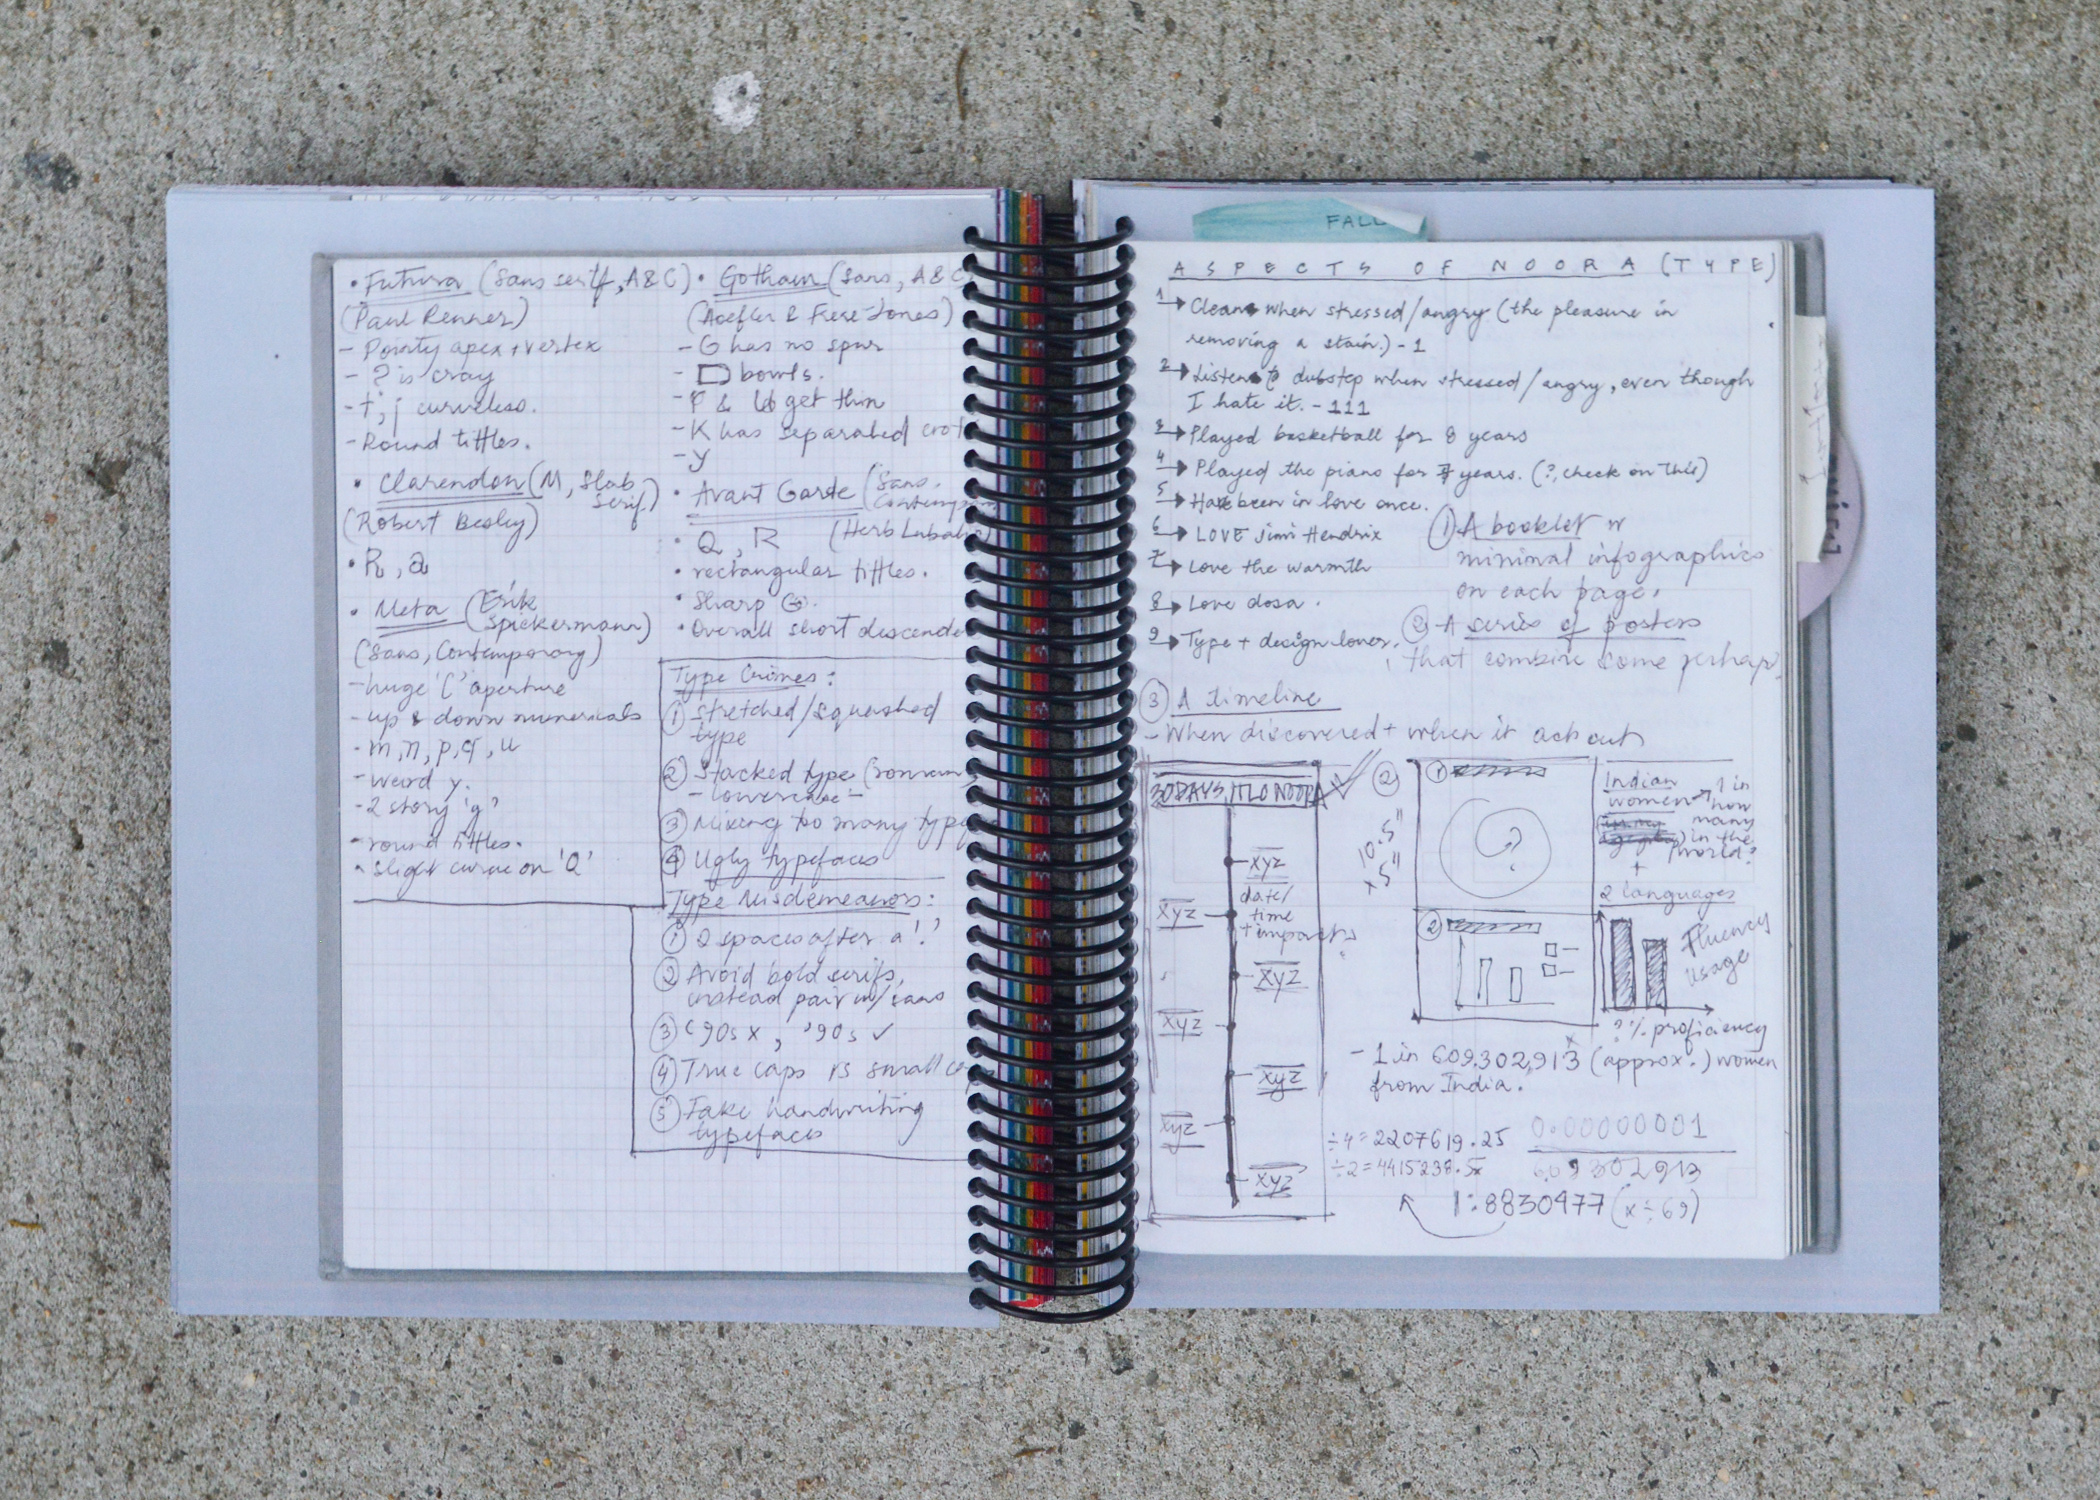 • Futura (Sans serif, A&C)
(Paul Renner)
- Pointy apex + vertex
- ? is cray
- t, j curveless.
- Round tittles.
• Clarendon (M, Slab
Serif)
(Robert Besley)
• R, a
• Meta (Erik
Spiekermann)
(Sans, Contemporary)
- huge 'C' aperture
- up & down numericals
- m, n, p, q, u
- weird y.
- 2 story 'g'
- round tittles.
• slight curve on 'Q'
• Gotham (Sans, A&C
(Hoefler & Frere-Jones)
- G has no spur
- bowls.
- get thin
- K has separated
- y
• Avant Garde (Sans,
(Herb Lubalin
• Q, R
• rectangular tittles.
• Sharp G.
• Overall short descende
Type Crimes:
① Stretched/squashed
type
② Stacked type (roman,
- lowercase -
③ Mixing too many type
④ Ugly typefaces
Type Misdemeanors:
① 2 spaces after a '.'
② Avoid bold serifs,
instead pair w/ sans
③ ‘90s x, ’90s ✓
④ True caps vs small
⑤ Fake handwriting
typefaces
FALL
ASPECTS OF NOORA (TYPE)
1→ Cleans when stressed/angry (the pleasure in
removing a stain.) - 1
2→ Listens to dubstep when stressed/angry, even though
I hate it. - 111
3→ Played basketball for 8 years
4→ Played the piano for 7 years. (?, check on this)
5→ Have been in love once.
6→ LOVE Jimi Hendrix
7→ Love the warmth
8→ Love dosa.
9→ Type + design lover.
① A booklet w
minimal infographics
on each page.
② A series of posters
that combine some perhaps
③ A timeline
- When discovered + when it acts out
30 DAYS
xyz
date/
time
+ impact
xyz
xyz
xyz
xyz
xyz
xyz
②
10.5"
x5"
①
?
②
Indian
women → 1 in
how
many
in the
world?
+
2 languages
Fluency
usage
? % proficiency
- 1 in 609,302,913 (approx.) women
from India.
÷4=2207619.25
÷2=4415238.5
0.00000001
609302913
1:8830477 (x÷69)